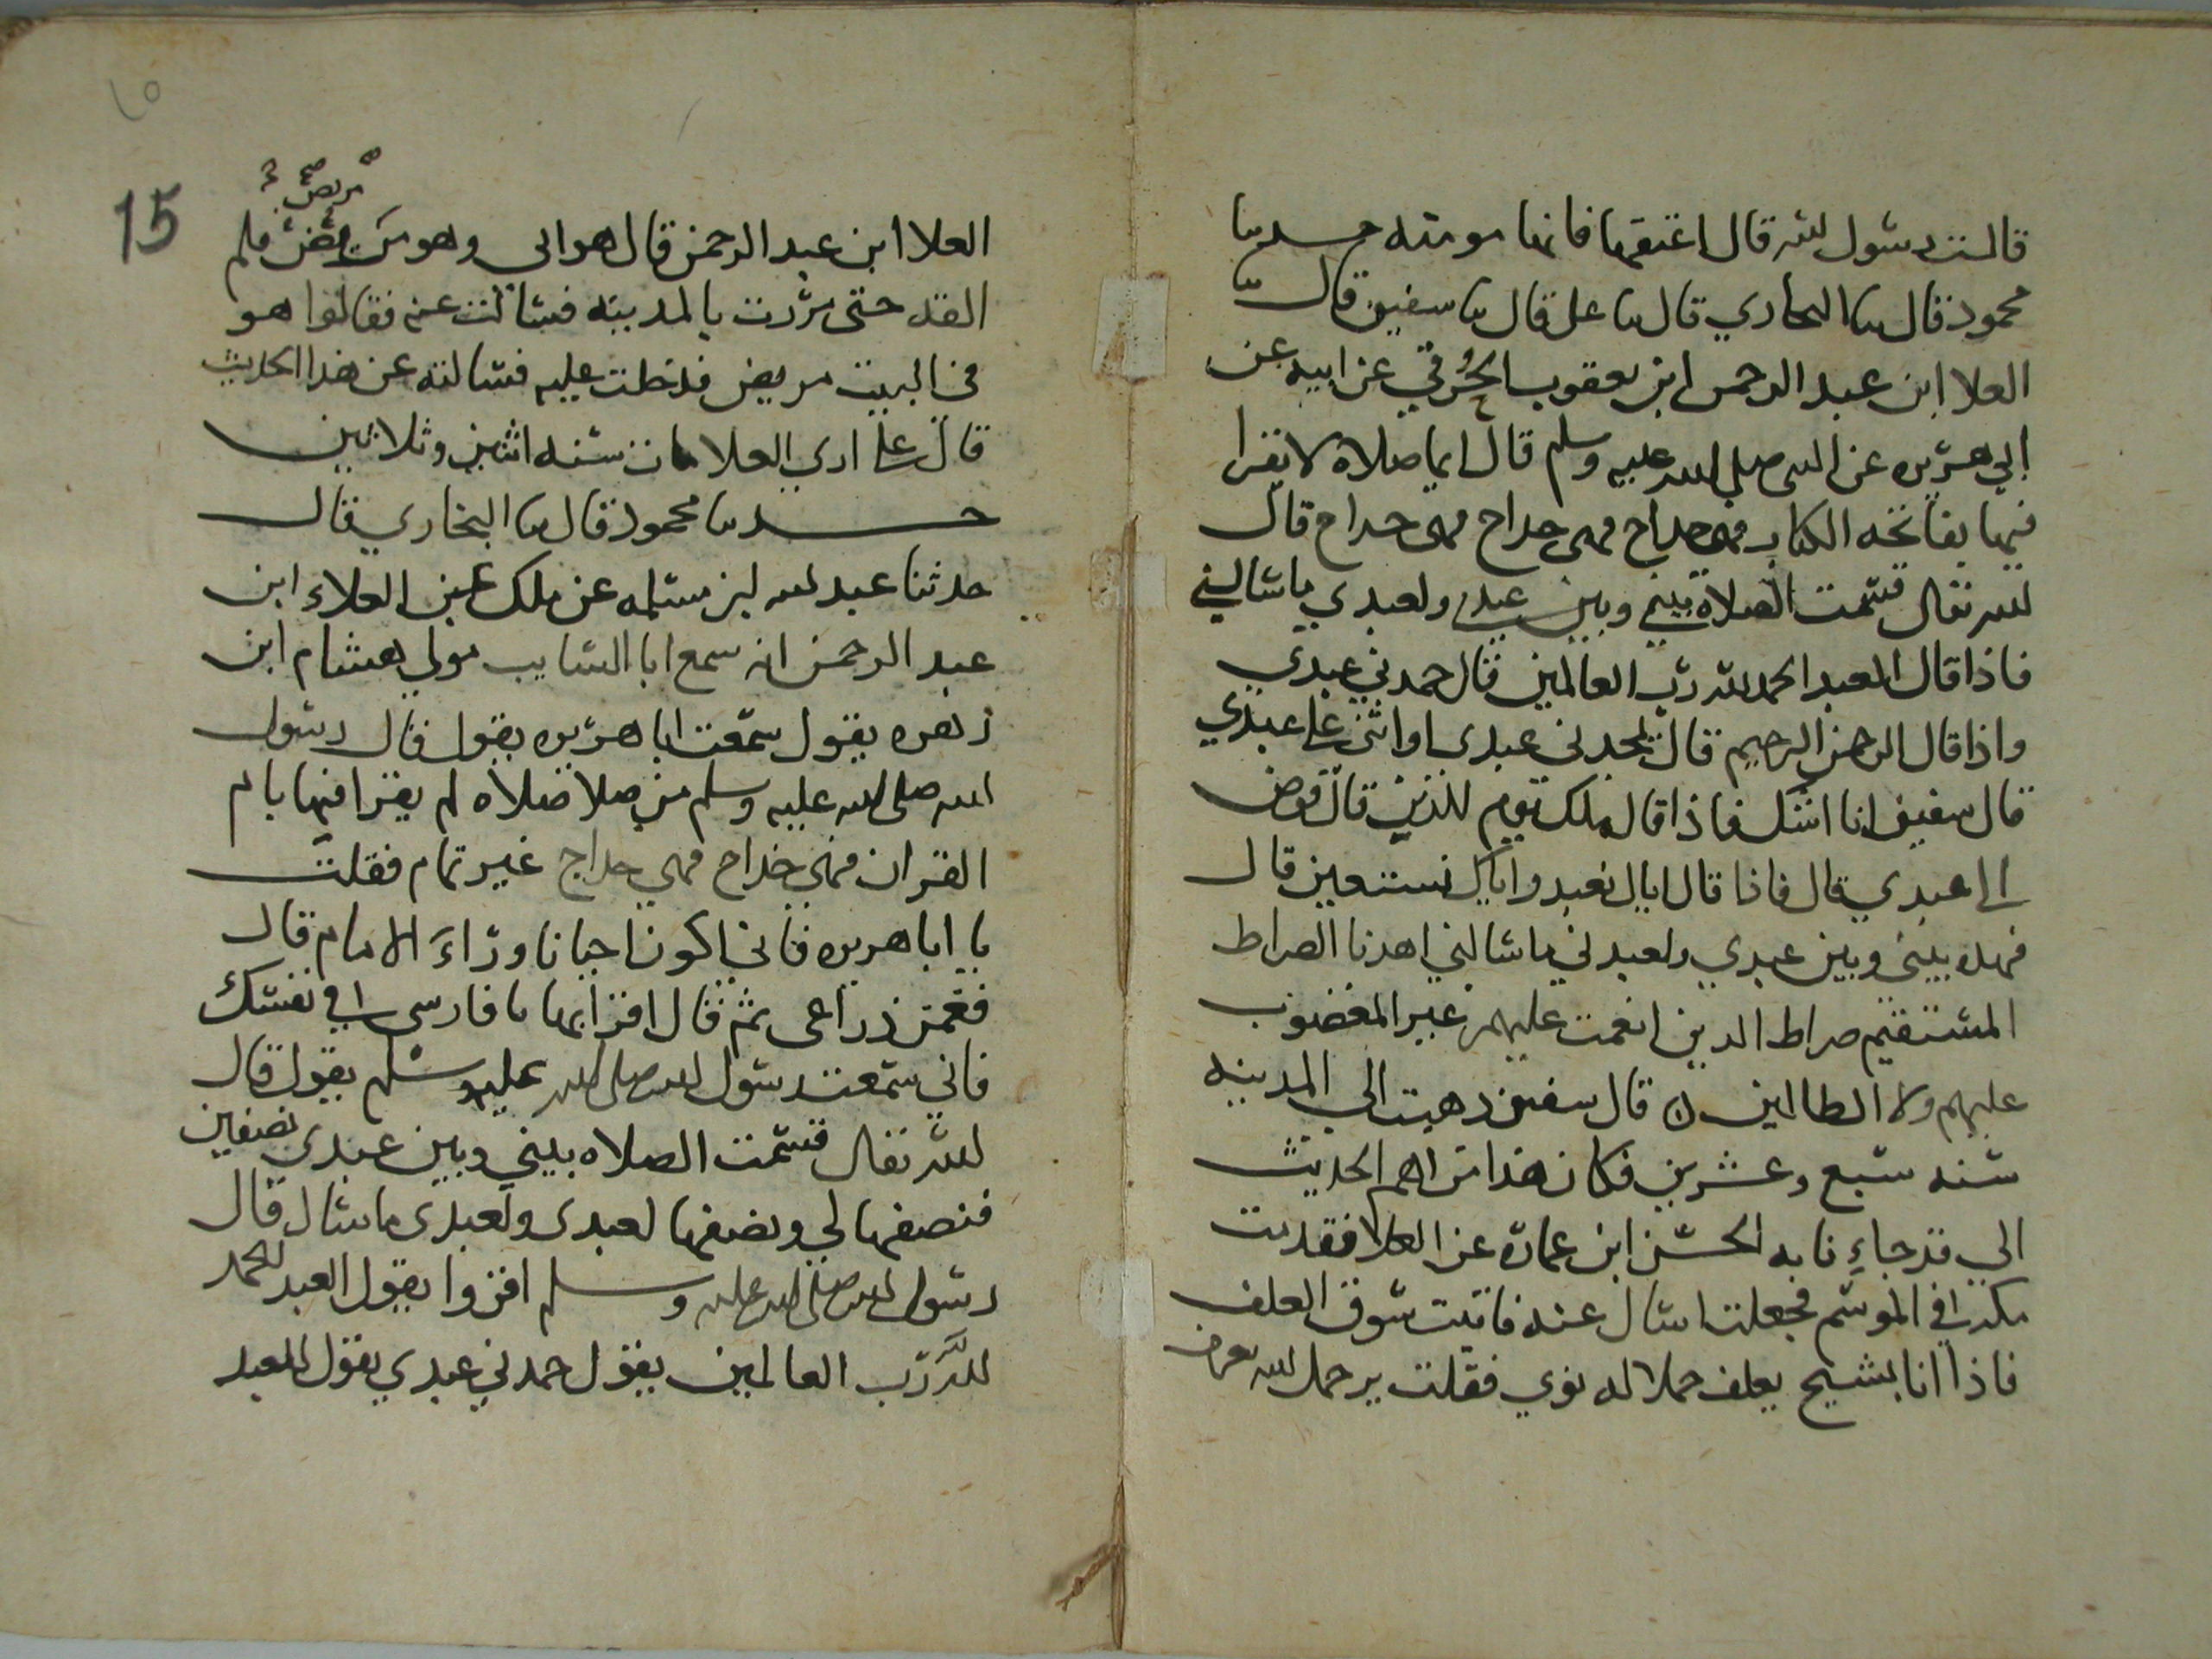 قالت رسول الله قال اعتقها فانها مومنه حدثنا
محمود قال ثنا البخاري قال ثنا علي قال ثنا سفين قال ثنا
العلا ابن عبد الرحمن ابن يعقوب الحُرقي عن ابيه عن
ابي هريره عن النبي صلى الله عليه وسلم قال ايما صلاة لا يقرا
فيها بفاتحه الكتاب فهي خداج فهي خداج فهي خداج قال
الله تعالى قسمت الصلاة بيني وبين عبدي ولعبدي ما سالني
فاذا قال العبد الحمد لله رب العالمين قال حمدني عبدي
واذا قال الرحمن الرحيم قال مجدني عبدي او اثنى علي عبدي
قال سفين انا اشك فاذا قال ملك يوم الدين قال فوض
الي عبدي قال فاذا قال اياك نعبد واياك نستعين قال
فهذه بيني وبين عبدي ولعبدي ما سالني اهدنا الصراط
المستقيم صراط الذين انعمت عليهم غير المغضوب
عليهم ولا الظالين ن قال سفين ذهبت الي المدينه
سنه سبع وعشرين فكان هذا من اهم الحديث
الي قد جاءنا به الحسن ابن عمارة عن العلا فقدمت
مكه في الموسم فجعلت اسال عنه فاتيت سوق العلف
فاذا انا بشيخ يعلف جملا له نوي فقلت يرحمك الله تعرف
15
١٥
مريض صح
العلا ابن عبد الرحمن قال هو ابي وهو مريض فلم
القه حتى مررت بالمدينه فسالت عنه فقالوا هو
في البيت مريض فدخلت عليه فسالته عن هذا الحديث
قال علي اري العلا مات سنه اثنين وثلاثين
حدثنا محمود قال ثنا البخاري قال
حدثنا عبد الله ابن مسلمه عن ملك عن العلاء ابن
عبد الرحمن انه سمع ابا السايب مولي هشام ابن
زهره يقول سمعت ابا هريره يقول قال رسول
الله صلى الله عليه وسلم من صلا صلاه لم يقرا فيها بام
القران فهي خداج فهي خداج غير تمام فقلت
يا ابا هريره فاني اكون احيانا ورَاءَ الامام قال
فغمز ذراعي ثم قال اقرا بها يا فارسي في نفسك
فاني سمعت رسول الله صلى الله عليه وسلم يقول قال
الله تعالى قسمت الصلاه بيني وبين عبدي نصفين
فنصفها لي ونصفها لعبدي ولعبدي ما سال قال
رسول الله صلى الله عليه وسلم اقروا يقول العبد الحمد
لله رب العالمين يقول حمدني عبدي يقول العبد